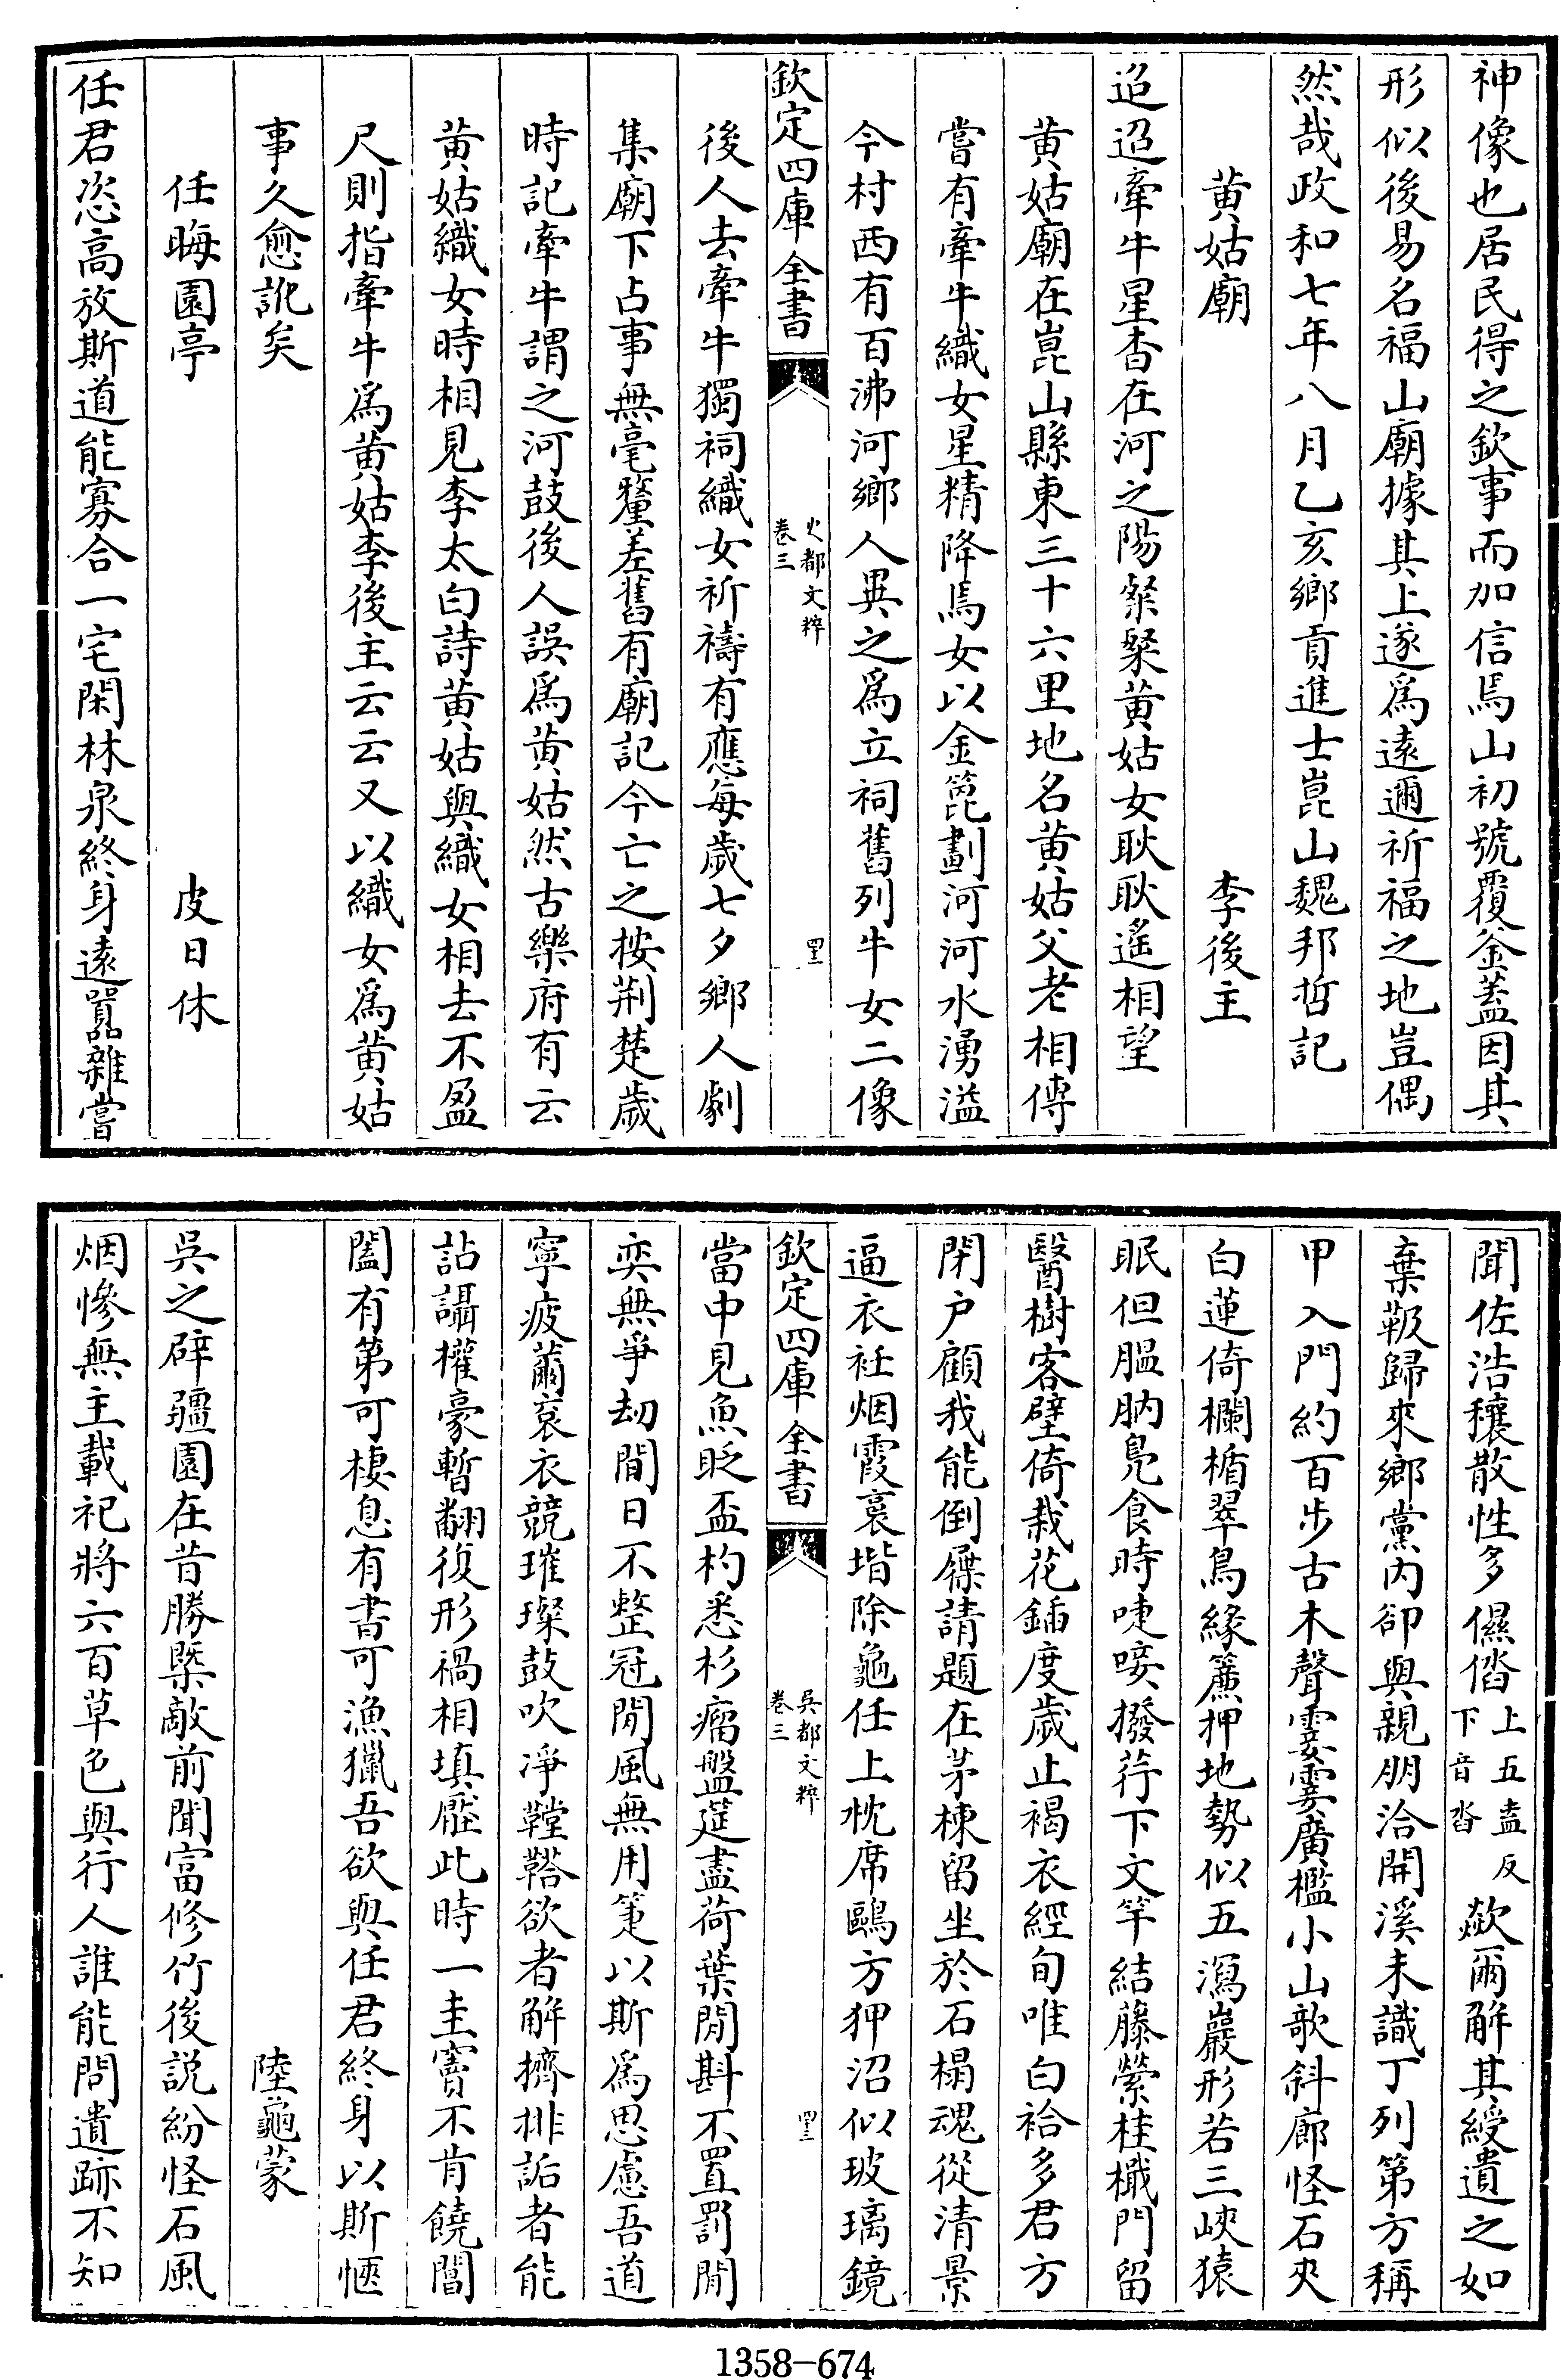 神像也居民得之欽事而加信焉山初號覆釜蓋因其
形似後易名福山廟據其上遂爲遠邇祈福之地豈偶
然哉政和七年八月乙亥鄉貢進士崑山魏邦哲記
黄姑廟　李後主
迢迢牽牛星杳在河之陽粲粲黄姑女耿耿遙相望
黄姑廟在崑山縣東三十六里地名黄姑父老相傳
嘗有牽牛織女星精降焉女以金箆劃河河水湧溢
今村西有百沸河鄉人異之爲立祠舊列牛女二像
欽定四庫全書
吳都文粹
卷三
四十二
後人去牽牛獨祠織女祈禱有應每歲七夕鄉人劇
集廟下占事無毫釐差舊有廟記今亡之桉荆楚歲
時記牽牛謂之河鼓後人誤爲黄姑然古樂府有云
黄姑織女時相見李太白詩黄姑與織女相去不盈
尺則指牽牛爲黄姑李後主云云又以織女爲黄姑
事久愈訛矣
任晦園亭　皮日休
任君恣高放斯道能寡合一宅閑林泉終身遠囂雜嘗
聞佐浩穰散性多㒔偺
上五盍反
下音沓
歘爾解其綬遺之如
棄靸歸來鄉黨内卻與親朋洽開溪未識丁列第方稱
甲入門約百步古木聲霎霎廣檻小山歌斜廊怪石夾
白蓮倚欄楯翠鳥緣簾押地勢似五瀉巖形若三峽猿
眠但腽肭鳧食時啑唼撥荇下文竿結藤縈桂檝門留
醫樹客壁倚栽花鍤度歲止褐衣經旬唯白袷多君方
閉户顧我能倒屧請題在茅棟留坐於石榻魂從清景
逼衣衽烟霞裛堦除龜任上枕席鷗方狎沼似玻璃鏡
欽定四庫全書
吳都文粹
卷三
四十三
當中見魚眨盃杓悉杉瘤盤筵盡荷葉閒斟不置罰閒
奕無爭刼閒日不整冠閒風無用箑以斯爲思慮吾道
寧疲薾衮衣競璀璨鼓吹凈鞺鞳欲者解擠排詬者能
詀讘權豪暫翻復形禍相填壓此時一圭竇不肯饒閶
闔有第可棲息有書可漁獵吾欲與任君終身以斯愜
陸龜蒙
吳之辟疆園在昔勝槩敵前聞富修竹後說紛怪石風
烟慘無主載祀將六百草色與行人誰能問遺跡不知
1358–674